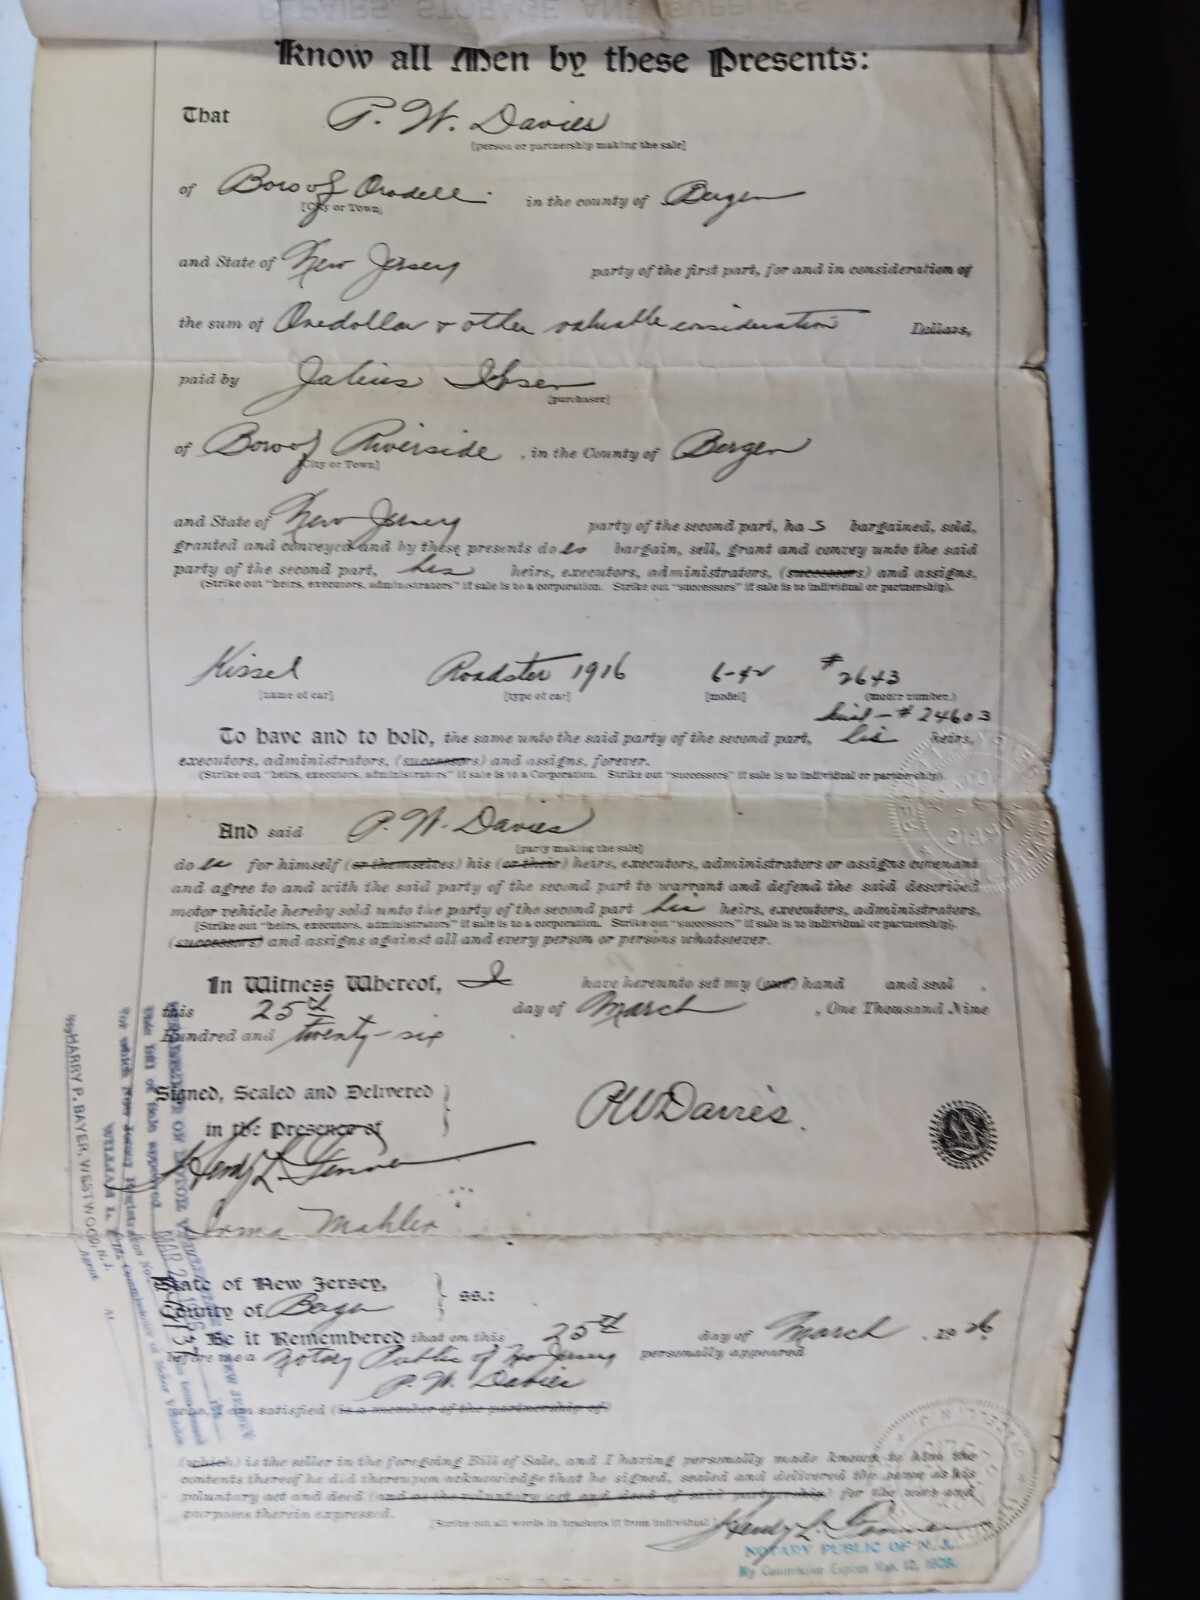 Know all Men by these Presents:
That P. W. Davies
[person or partnership making the sale]
of Boro of Oradell in the county of Bergen
[City or Town]
and State of New Jersey party of the first part, for and in consideration of
the sum of One dollar & other valuable consideration Dollars,
paid by Julius Ibsen
[purchaser]
of Boro of Riverside, in the County of Bergen
[City or Town]
and State of New Jersey party of the second part, has bargained, sold,
granted and conveyed and by these presents does bargain, sell, grant and convey unto the said
party of the second part, his heirs, executors, administrators, (successors) and assigns,
(Strike out "heirs, executors, administrators" if sale is to a corporation. Strike out "successors" if sale is to individual or partnership).
Kissel Roadster 1916 6-42 #2643
[name of car] [type of car] [model] (motor number.)
#24603
To have and to hold, the same unto the said party of the second part, his heirs,
executors, administrators, (successors) and assigns, forever.
(Strike out "heirs, executors, administrators" if sale is to a Corporation. Strike out "successors" if sale is to individual or partnership).
And said P. W. Davies
[party making the sale]
does for himself (or themselves) his (or their) heirs, executors, administrators or assigns covenant
and agree to and with the said party of the second part to warrant and defend the said described
motor vehicle hereby sold unto the party of the second part his heirs, executors, administrators,
[Strike out "heirs, executors, administrators" if sale is to a corporation. Strike out "successors" if sale is to individual or partnership).
(successors) and assigns against all and every person or persons whatsoever.
In Witness Whereof, I have hereunto set my (our) hand and seal.
this 25th day of March, One Thousand Nine
Hundred and twenty-six
Signed, Sealed and Delivered
in the Presence of
PW Davies.
Henry L.
Irma Mahler
State of New Jersey,
County of Bergen ss.:
Be it Remembered that on this 25th day of March, 1926
before me a Notary Public of New Jersey personally appeared
P. W. Davies
I am satisfied (is a member of the partnership of)
(which) is the seller in the foregoing Bill of Sale, and I having personally made known to him the
contents thereof he did thereupon acknowledge that he signed, sealed and delivered the same as his
voluntary act and deed (and as the voluntary act and deed of said partnership) for the uses and
purposes therein expressed.
[Strike out all words in brackets if from individual]
Henry L.
NOTARY PUBLIC OF N. J.
My Commission Expires
HARRY P. BAYER, WESTWOOD, N.J.
Agent